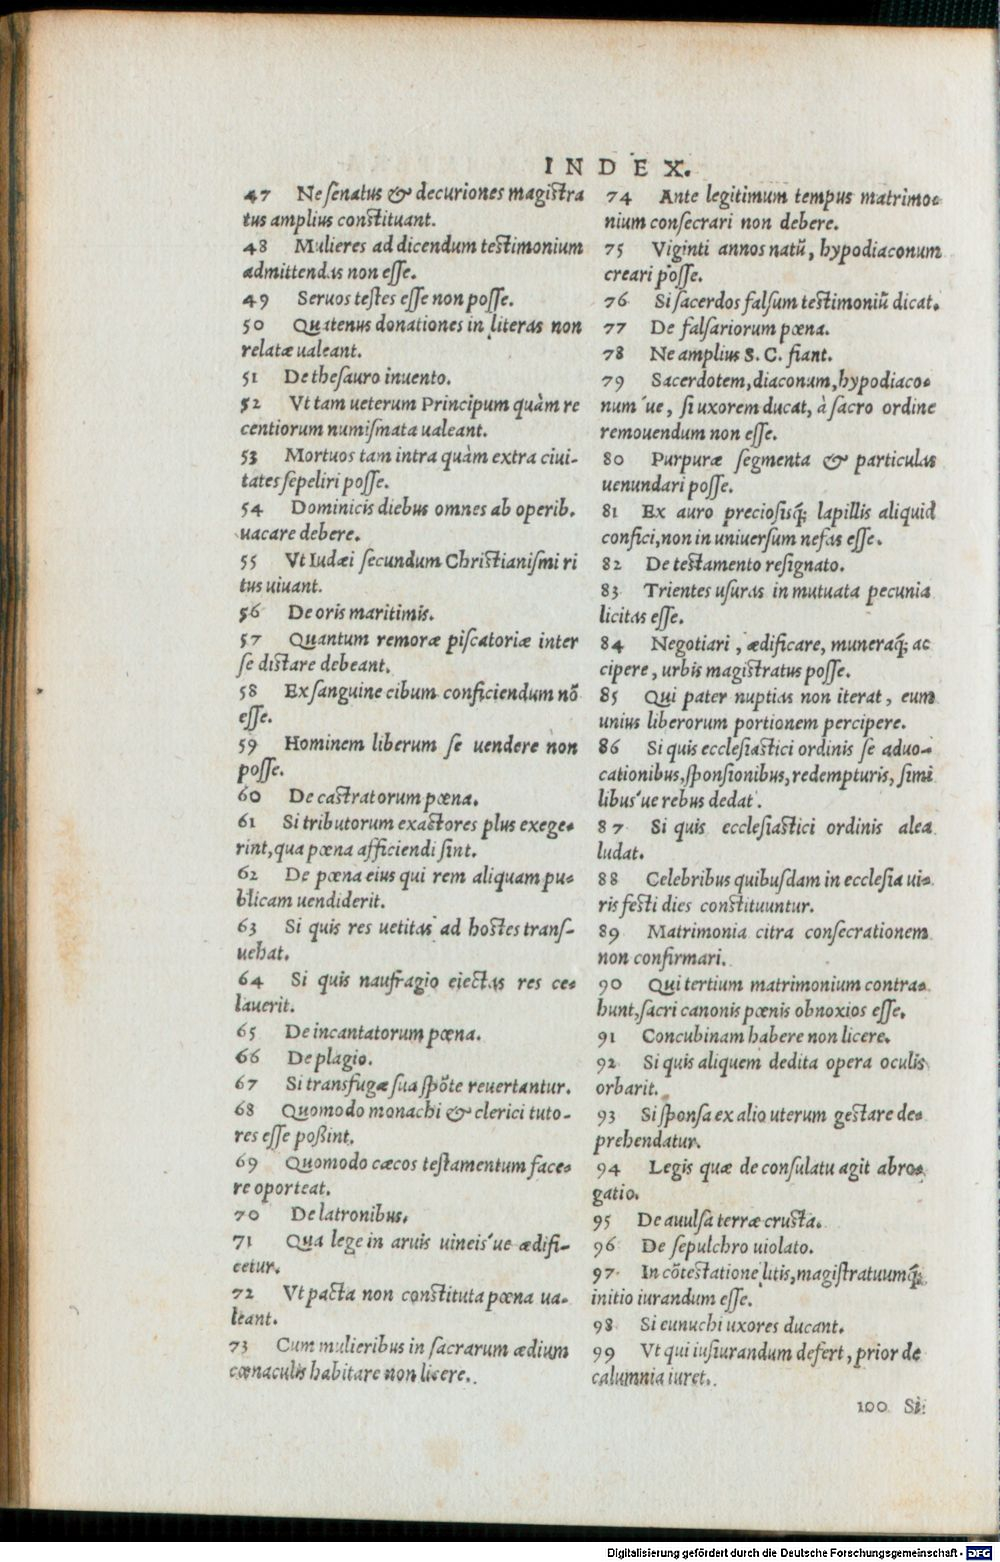 INDEX.
47 Ne senatus & decuriones magistra
tus amplius constituant.
48 Mulieres ad dicendum testimonium
admittendas non esse.
49 Seruos testes esse non posse.
50 Quatenus donationes in literas non
relatæ ualeant.
51 De thesauro inuento.
52 Vt tam ueterum Principum quàm re
centiorum numismata ualeant.
53 Mortuos tam intra quàm extra ciui-
tates sepeliri posse.
54 Dominicis diebus omnes ab operib.
uacare debere.
55 Vt Iudæi secundum Christianismi ri
tus uiuant.
56 De oris maritimis.
57 Quantum remoræ piscatoriæ inter
se distare debeant.
58 Ex sanguine cibum conficiendum nõ
esse.
59 Hominem liberum se uendere non
posse.
60 De castratorum pœna.
61 Si tributorum exactores plus exege-
rint, qua pœna afficiendi sint.
62 De pœna eius qui rem aliquam pu-
blicam uendiderit.
63 Si quis res uetitas ad hostes trans-
uehat.
64 Si quis naufragio eiectas res ce-
lauerit.
65 De incantatorum pœna.
66 De plagio.
67 Si transfugæ sua spõte reuertantur.
68 Quomodo monachi & clerici tuto-
res esse poßint.
69 Quomodo cæcos testamentum face-
re oporteat.
70 De latronibus.
71 Qua lege in aruis uineis'ue ædifi-
cetur.
72 Vt pacta non constituta pœna ua-
leant.
73 Cum mulieribus in sacrarum ædium
cœnaculis habitare non licere.
74 Ante legitimum tempus matrimo-
nium consecrari non debere.
75 Viginti annos natũ, hypodiaconum
creari posse.
76 Si sacerdos falsum testimoniũ dicat.
77 De falsariorum pœna.
78 Ne amplius S. C. fiant.
79 Sacerdotem, diaconum, hypodiaco-
num'ue, si uxorem ducat, à sacro ordine
remouendum non esse.
80 Purpuræ segmenta & particulas
uenundari posse.
81 Ex auro preciosisq; lapillis aliquid
confici, non in uniuersum nefas esse.
82 De testamento resignato.
83 Trientes usuras in mutuata pecunia
licitas esse.
84 Negotiari, ædificare, muneraq; ac
cipere, urbis magistratus posse.
85 Qui pater nuptias non iterat, eum
unius liberorum portionem percipere.
86 Si quis ecclesiastici ordinis se aduo-
cationibus, sponsionibus, redempturis, simi
libus'ue rebus dedat.
87 Si quis ecclesiastici ordinis alea
ludat.
88 Celebribus quibusdam in ecclesia ui-
ris festi dies constituuntur.
89 Matrimonia citra consecrationem
non confirmari.
90 Qui tertium matrimonium contra-
hunt, sacri canonis pœnis obnoxios esse.
91 Concubinam habere non licere.
92 Si quis aliquem dedita opera oculis
orbarit.
93 Si sponsa ex alio uterum gestare de-
prehendatur.
94 Legis quæ de consulatu agit abro-
gatio.
95 De auulsa terræ crusta.
96 De sepulchro uiolato.
97 In cõtestatione litis, magistratuumq;
initio iurandum esse.
98 Si eunuchi uxores ducant.
99 Vt qui iusiurandum defert, prior de
calumnia iuret.
100 Si
Digitalisierung gefördert durch die Deutsche Forschungsgemeinschaft - DFG